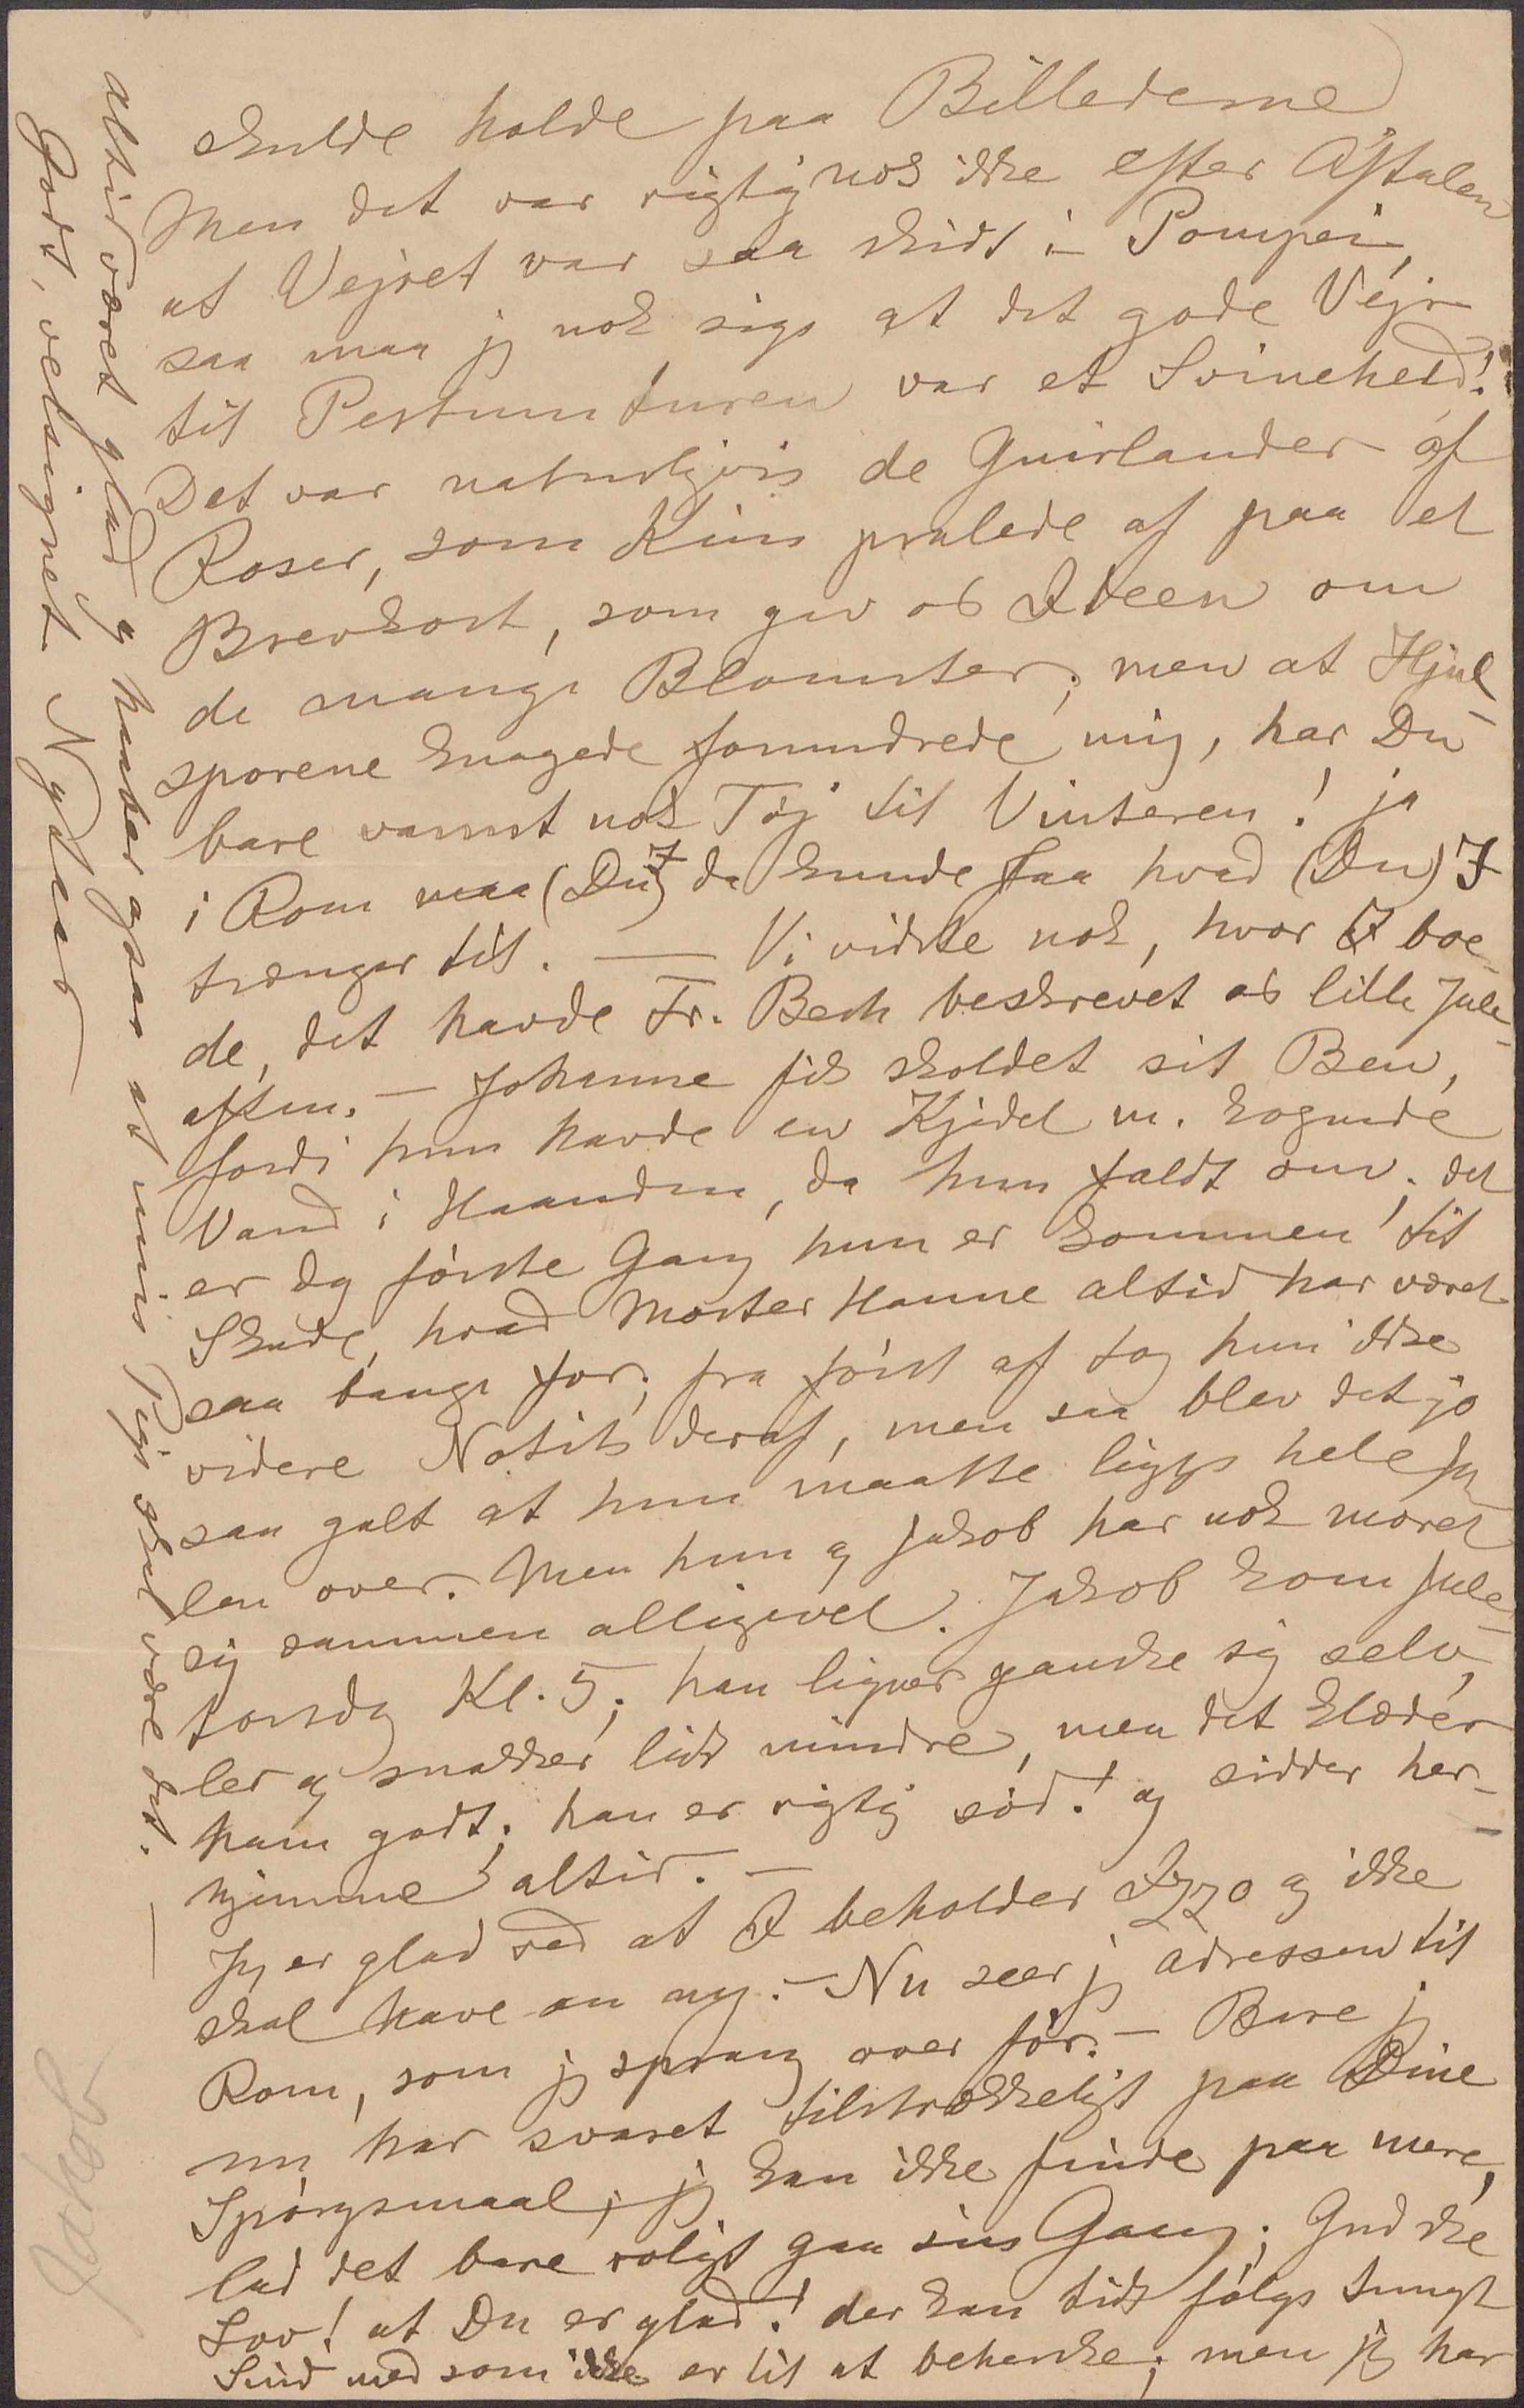 skulde holde paa Billederne
Men det var rigtig nok ikke efter Aftalen
at Vejret var saa skidt i Pompei,
saa maa jg nok sige at det gode Vejr
til Pestumturen var et Svineheld!
Det var naturligvis de Guirlander af
Roser, som Kun pralede af paa et
Brevkort, som gav os Ideen om
de mange Blomster; men at Hjul-
sporene knagede forundrede mig, har Du
bare varmt nok Tøj til Vinteren! ja
i Rom maa (Du) I da kunde faa hvad (Du) I
trænger til. — Vi vidste nok, hvor I boe-
de, det havde Fr. Bech beskrevet os lille Jule-
aften. — Johanne fik skoldet sit Ben,
fordi hun havde en Kjedel m. kogende
Vand i Haanden, da hun faldt om; det
er dog første Gang hun er kommen til
Skade, hvad Moster Hanne altid har været
saa bange for; fra først af tog hun ikke
videre Notits deraf, men saa blev det jo
saa galt at hun maatte ligge hele Ju-
len over. Men hun og Jakob har nok moret
sig sammen alligevel. Jakob kom Jule-
torsdag Kl. 5; han ligner ganske sig selv,
ler og snakker lidt mindre, men det klæder
ham godt; han er rigtig sød! og sidder her-
hjemme altid. —
Jeg er glad ved at I beholder Izzo og ikke
skal have en ny. — Nu seer jg Adressen til
Rom, som jg sprang over før. — Bare jg
nu har svaret tilstrækkeligt paa Dine
Spørgsmaal; jg kan ikke finde paa mere,
lad det bare roligt gaa sin Gang; Gud ske
Lov! at Du er glad! der kan tidt følge tungt
Sind med som ikke er let at beherske; men jg har
altid været glad og haaber ogsaa at min Pige skal være det. —
Godt, velsignet Nytaar
Jakob